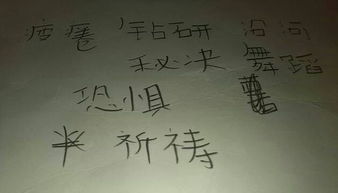 疲倦 钻研 沿河
秘决 舞蹈
恐惧
祈祷